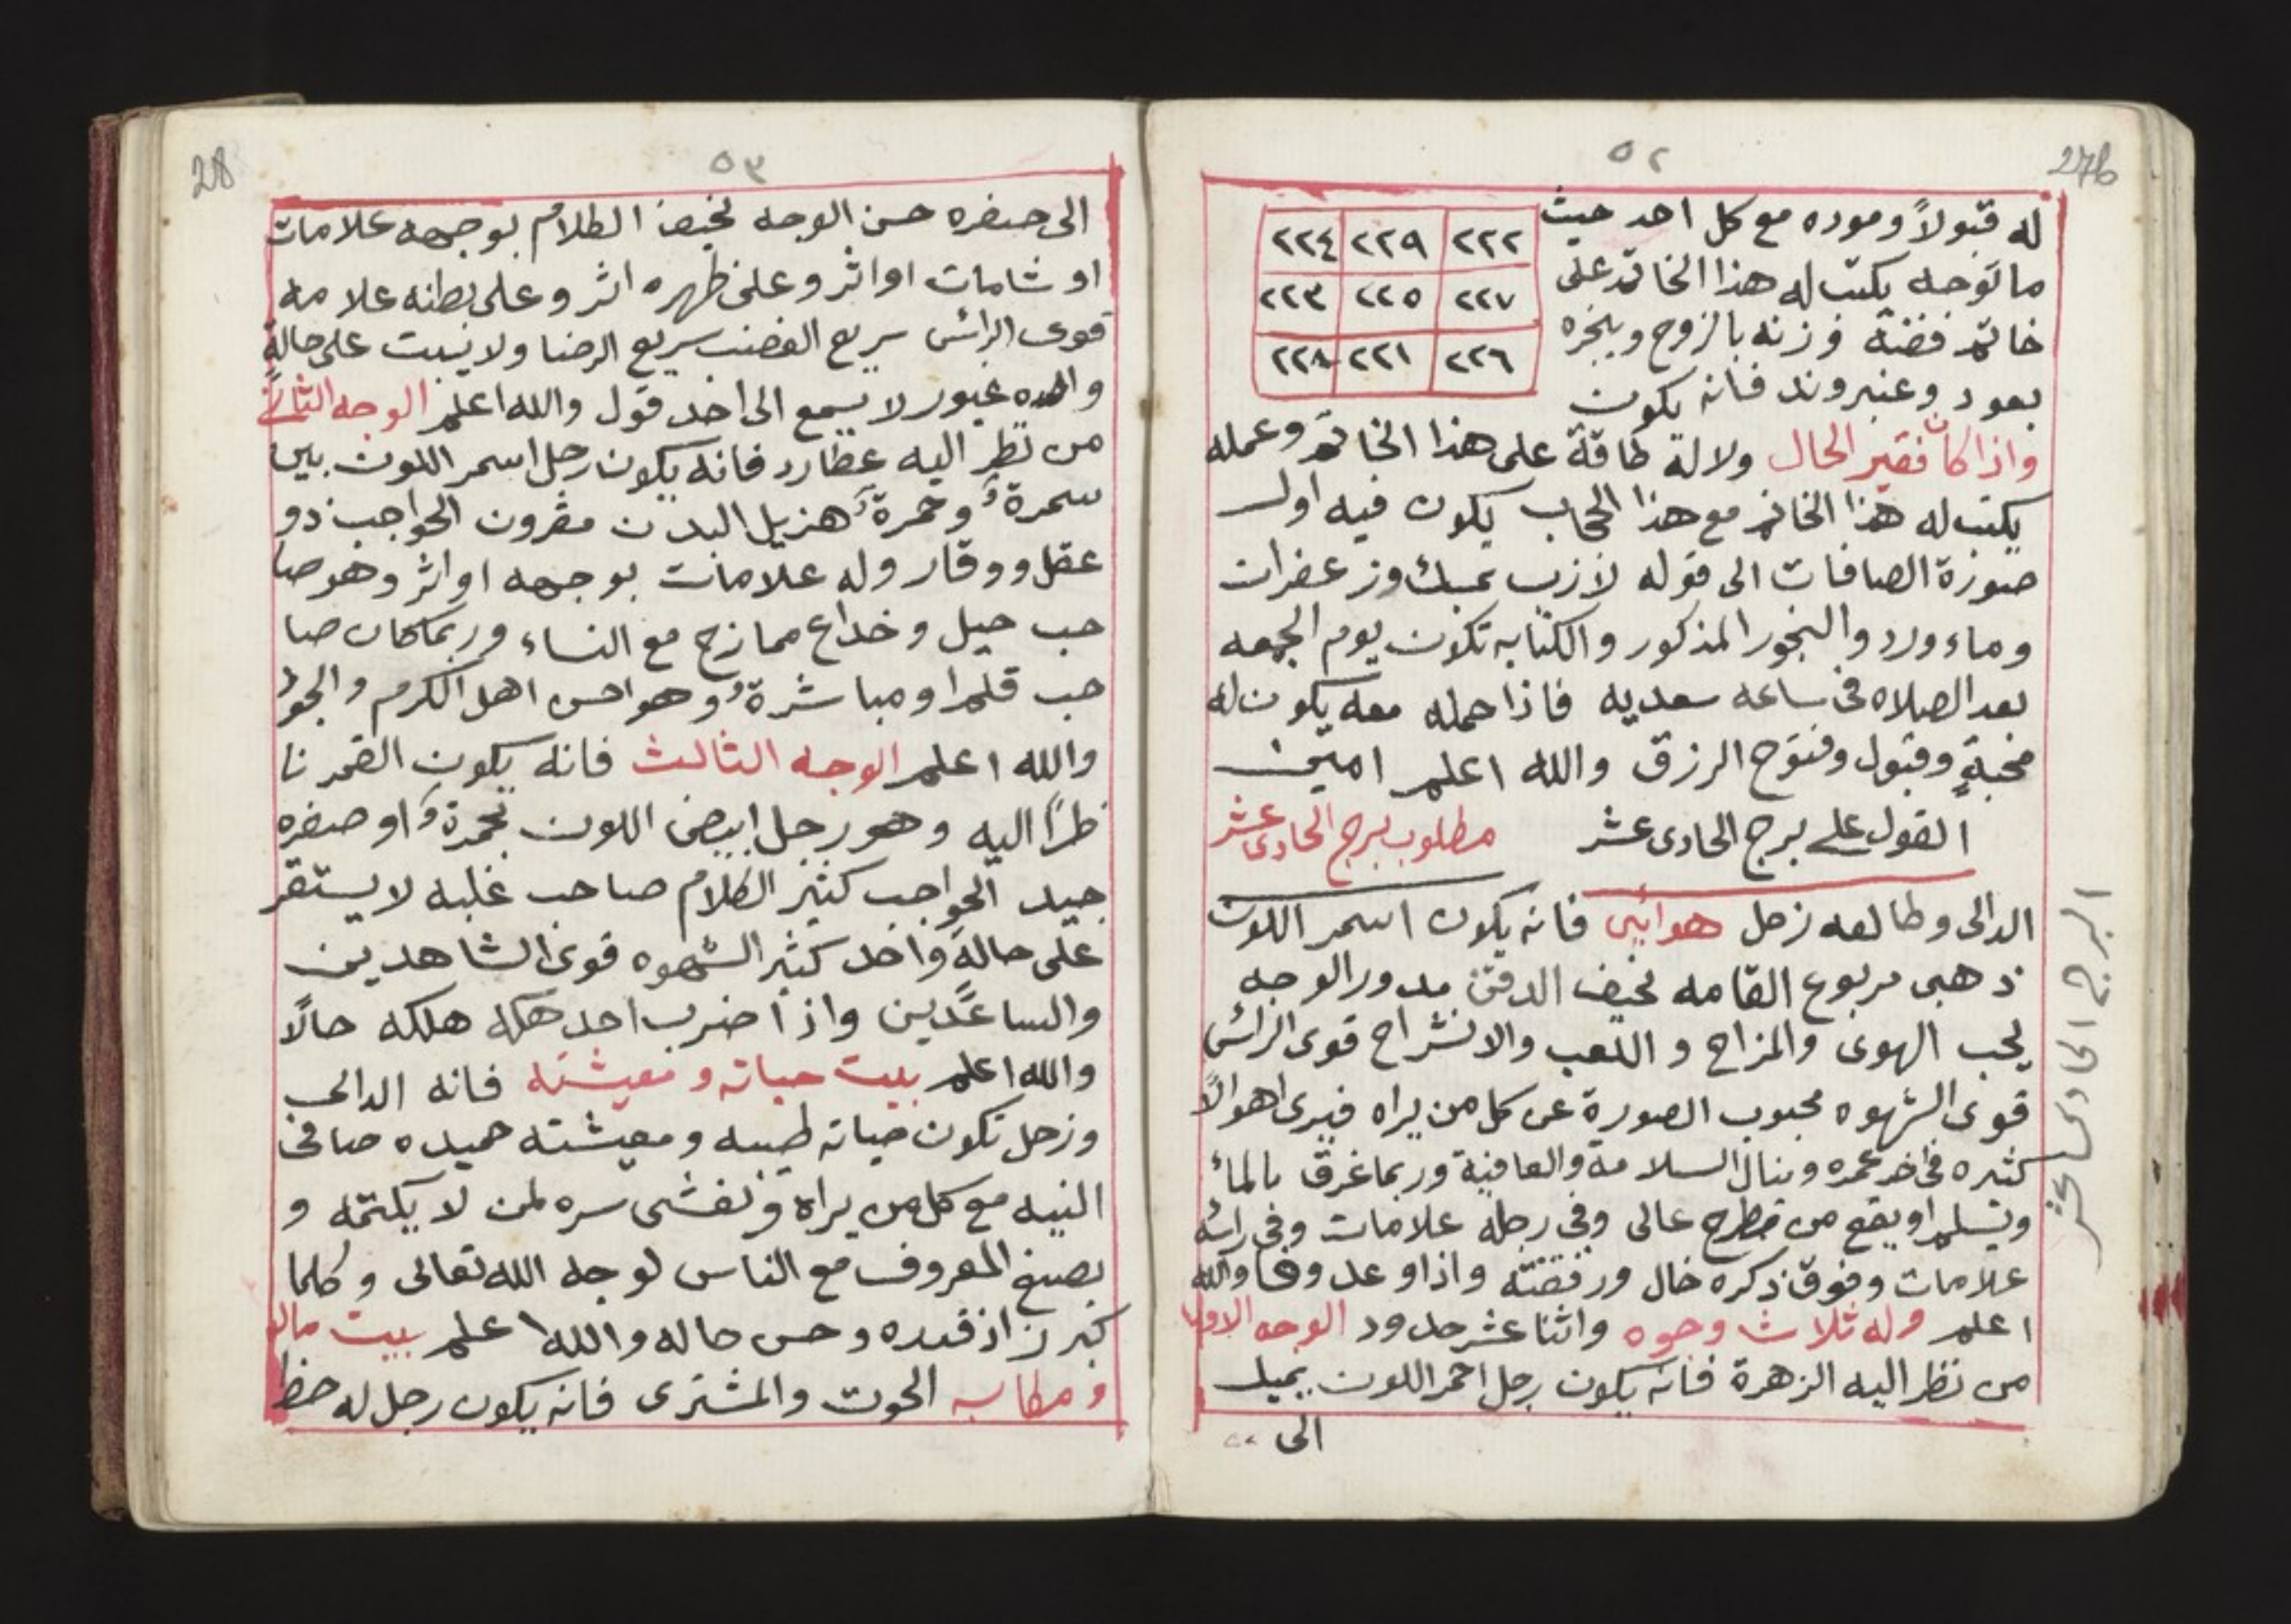 276
٥٢
له قبولاً وموده مع كل احد حيث
ما توجه يكتب له هذا الخاتم على
خاتم فضة وزنه بالزوج ويبخره
بعود وعنبر وند فانه يكون
٢٢٢ ٢٢٩ ٢٢٤
٢٢٧ ٢٢٥ ٢٢٣
٢٢٦ ٢٢١ ٢٢٨
واذا كان فقير الحال ولا له طاقة على هذا الخاتم وعمله
يكتب له هذا الخاتم مع هذا الحجاب يكون فيه اول
صورة الصافات الى قوله لازب بمسك وزعفران
وماء ورد والبخور المذكور والكتابه تكون يوم الجمعه
بعد الصلاه فى ساعه سعديه فاذا حمله معه يكون له
محبةٍ وقبول وفتوح الرزق والله اعلم امين
القول على برج الحادى عشر مطلوب برج الحادى عشر
الدالى وطالعه زحل هوائى فانه يكون اسمر اللون
ذهبى مربوع القامه نحيف الدقن مدور الوجه
يحب الهوى والمزاح و اللعب والانشراح قوى الرائس
قوى الشهوه محبوب الصورة عن كل من يراه فيرى اهوالاً
كثيره فى اخر عمره وينال السلامة والعافية وربما غرق بالماء
ويسلم او يقع من مطرح عالى وفى رجله علامات وفى رائه
علامات وفوق ذكره خال ورفقته واذا وعد وفا والله
اعلم وله ثلاث وجوه واثنا عشر حدود الوجه الاول
من نظر اليه الزهرة فانه يكون رجل احمر اللون يميل
الى
البرج الحادى عشر
28
٥٣
الى صفره حسن الوجه نحيف الكلام بوجهه علامات
او شامات او اثر وعلى ظهره اثر وعلى بطنه علامه
قوى الرائس سريع الغضب سريع الرضا ولا يثبت على حالةٍ
واحده غيور لا يسمع الى احد قول والله اعلم الوجه الثانى
من نظر اليه عطارد فانه يكون رجل اسمر اللون بين
سمرة وحمرة هزيل البدن مقرون الحواجب ذو
عقل ووقار وله علامات بوجهه او اثر وهو صا
حب حيل وخداع ممازح مع النساء وربما كان صا
حب قلم او مباشرة وهو احسن اهل الكرم والجود
والله اعلم الوجه الثالث فانه يكون القمر نا
ظرًا اليه وهو رجل ابيض اللون بحمرة او صفره
جيد الحواجب كثير الكلام صاحب غلبه لا يستقر
على حالة واحد كثير الشهوه قوى الشاهدين
والساعدين واذا ضرب احد هكه هلكه حالاً
والله اعلم بيت حياته ومعيشته فانه الدالى
وزحل تكون حياته طيبه ومعيشته حميده صافى
النيه مع كل من يراه ويفشى سره لمن لا يكتمه و
بصنع المعروف مع الناس لوجه الله تعالى وكلما
كبر زاد قدره وحسن حاله والله اعلم بيت ماله
ومكاسبه الحوت والمشترى فانه يكون رجل له حظ